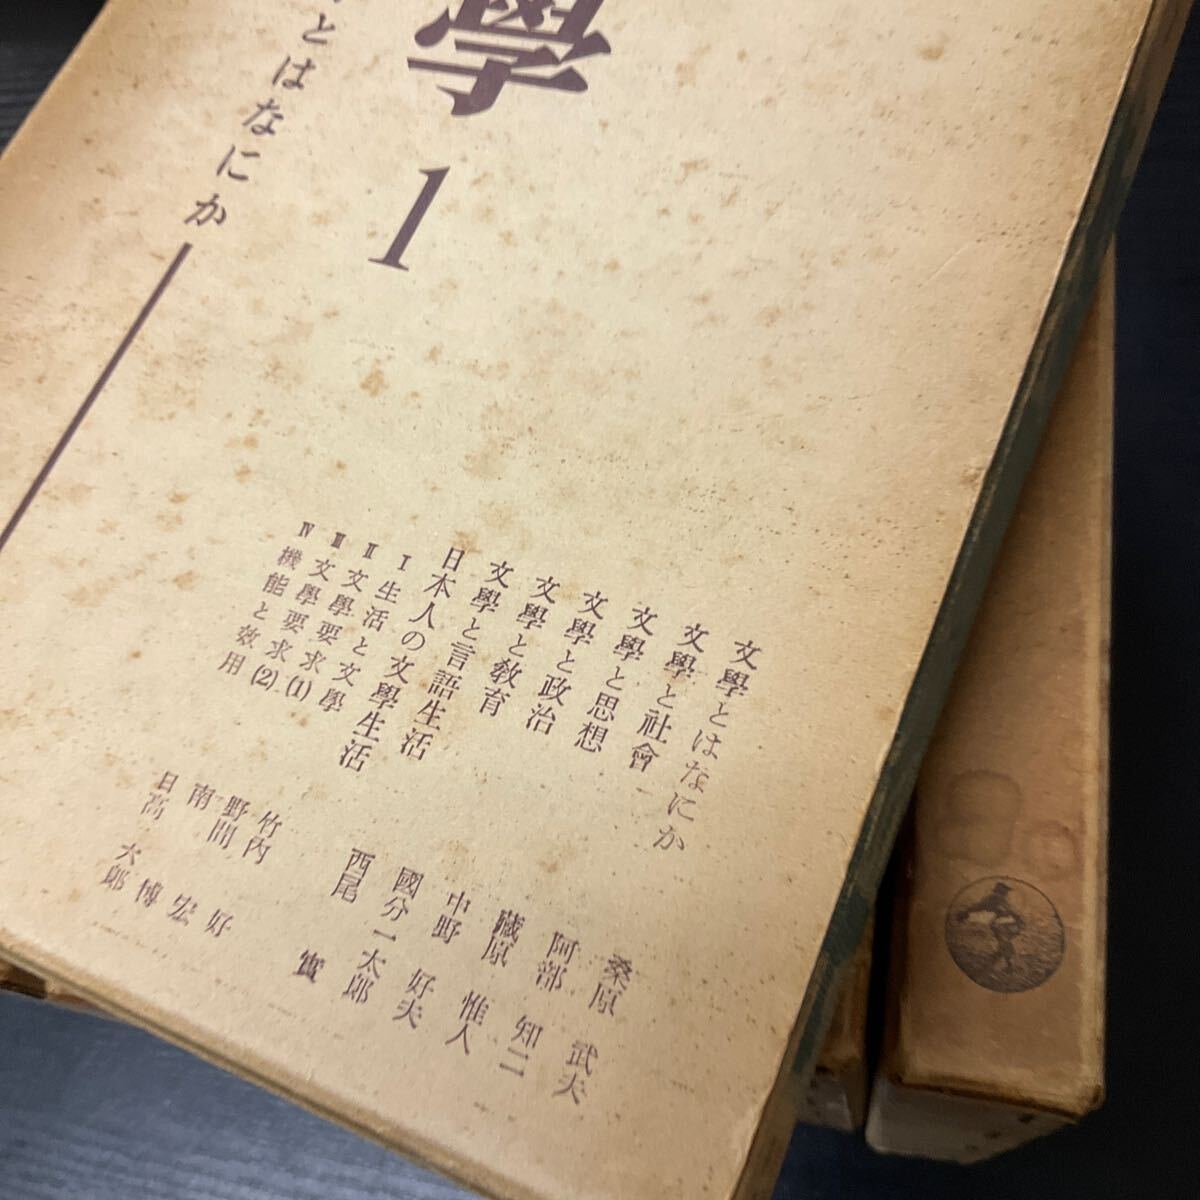 學
とはなにか
1
文學とはなにか
桑原 武夫
文學と社會
阿部 知二
文學と思想
藏原 惟人
文學と政治
中野 好夫
文學と教育
國分一太郎
文學と言語生活
西尾 實
日本人の文學生活
Ⅰ 生活と文學
竹内 好
Ⅱ 文學要求(1)
野間 宏
Ⅲ 文學要求(2)
南 博
Ⅳ 機能と效用
日高 六郎